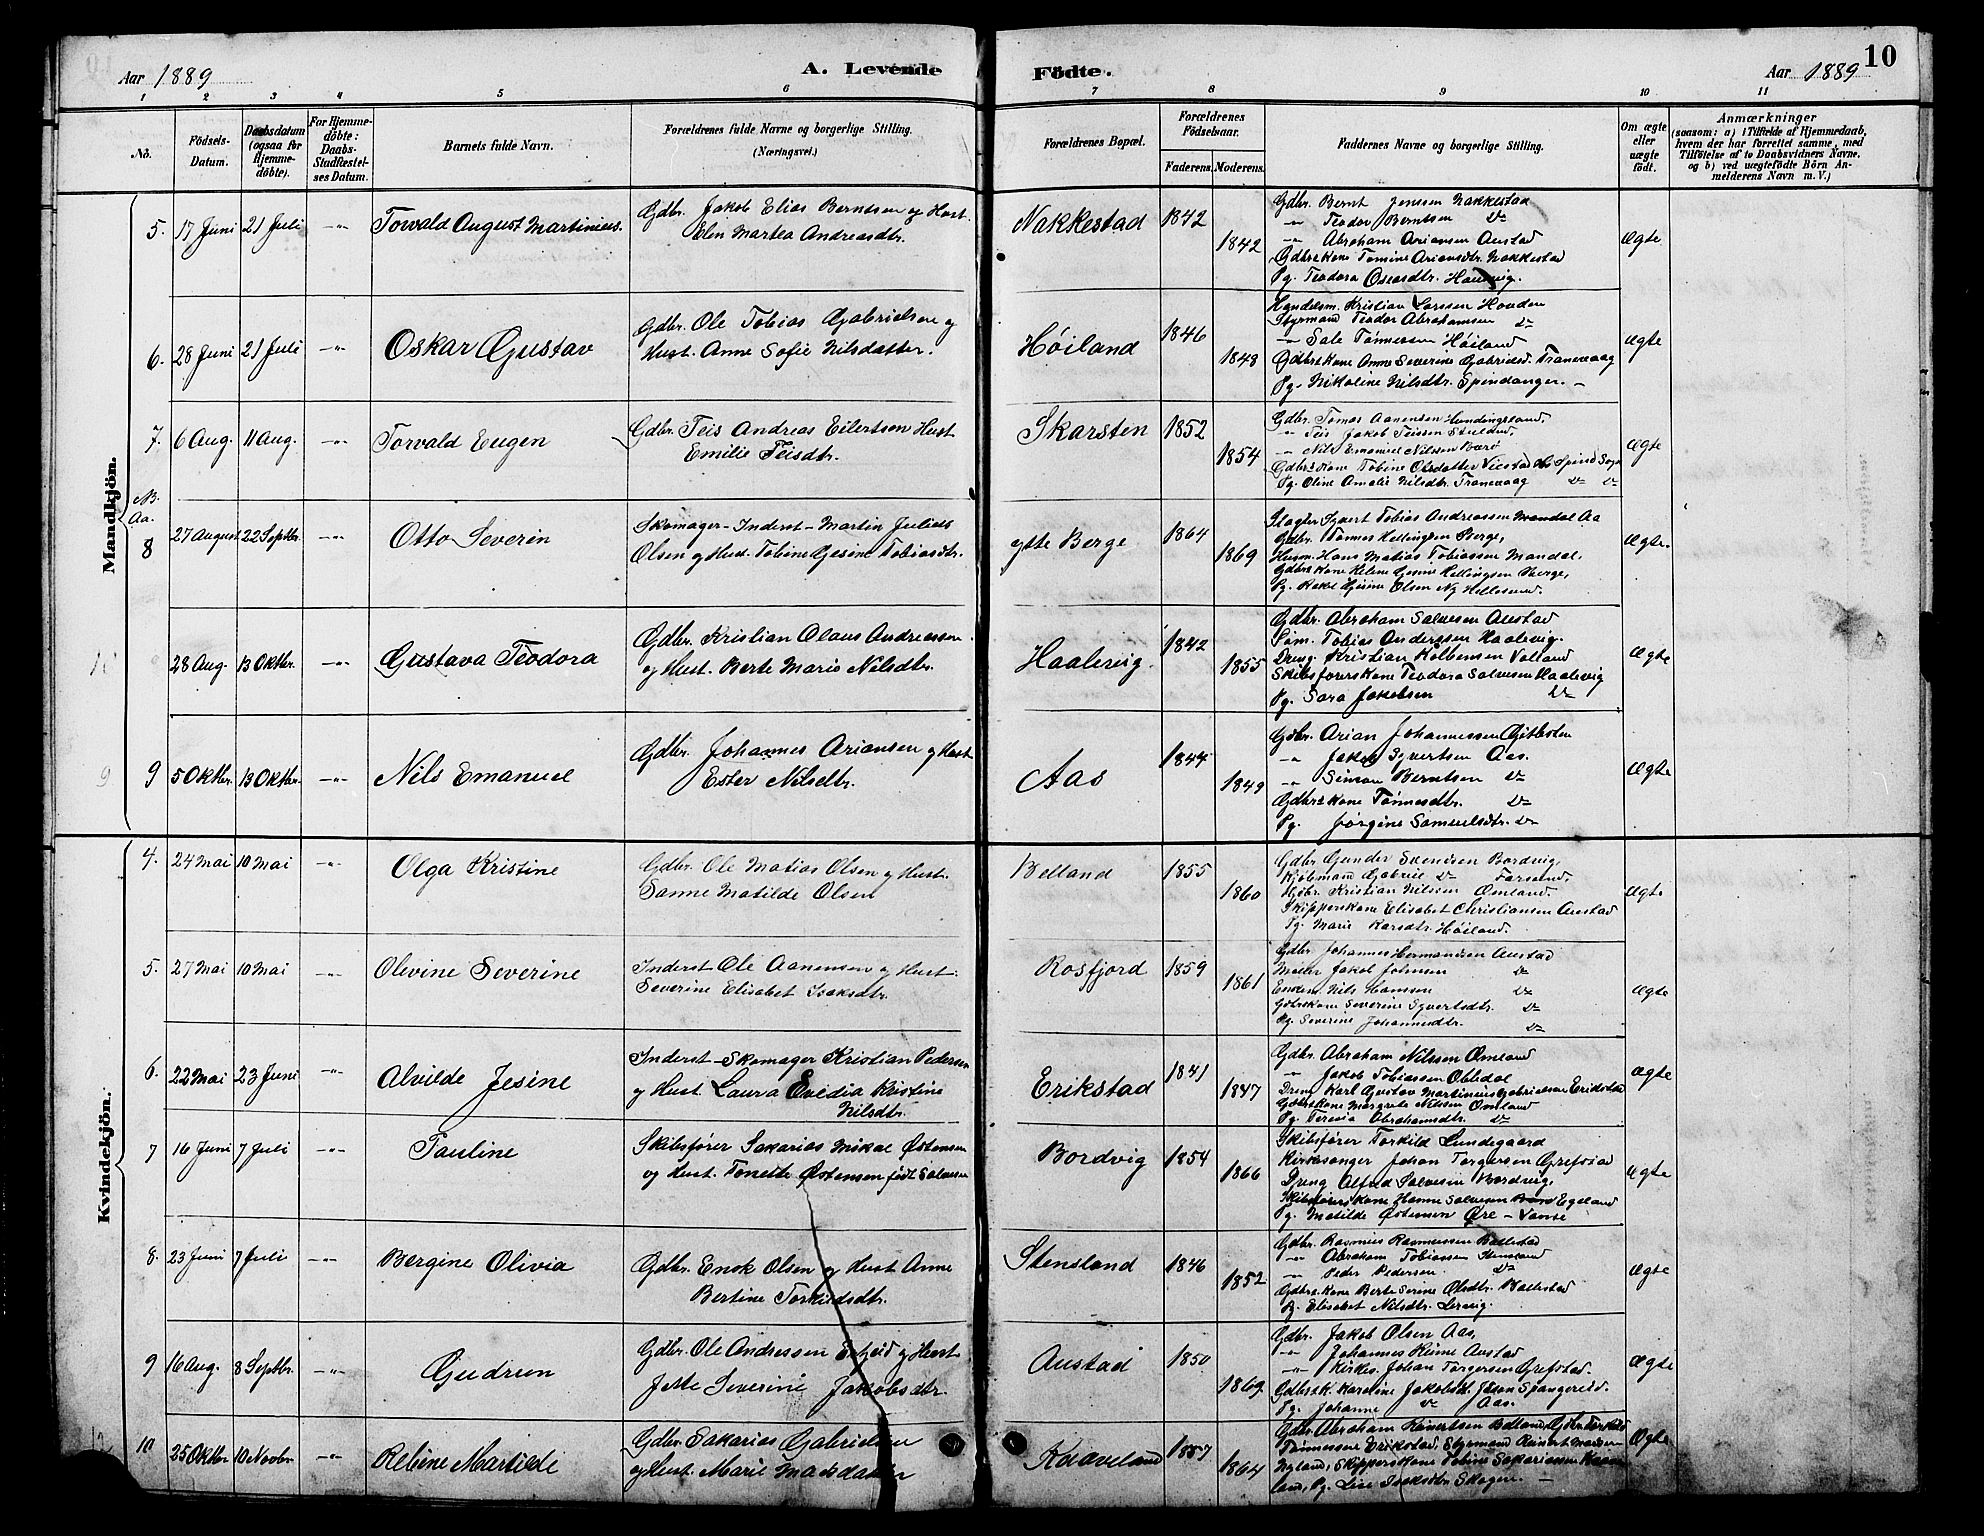 10
Aar 1889
A. Levende Födte.
Aar 1889
1 2 3 4 5 6 7 8 9 10 11
No.
Födsels-Datum.
Daabsdatum (ogsaa for Hjemmedöbte).
For Hjemmedöbte: Daabs-Stadfæstelses Datum.
Barnets fulde Navn.
Forældrenes fulde Navne og borgerlige Stilling. (Næringsvei.)
Forældrenes Bopæl.
Forældrenes Födselsaar.
Faderens. Moderens.
Faddernes Navne og borgerlige Stilling.
Om ægte eller uægte födt.
Anmærkninger
(saasom: a) i Tilfælde af Hjemmedaab, hvem der har forrettet samme, med Tilföielse af to Daabsvidners Navne, og b) ved uægtefödte Börn Anmelderens Navn m. V.)
Mandkjön.
5. 17 Juni 21 Juli Torvald August Martinius.
Gdbr. Jakob Elias Berntsen og Hust.
Elen Martea Andreasdtr.
Nakkestad 1842 1842
Gdbr. Bernt Jenssen Nakkestad
Teodor Berntsen
Abraham Ariansen Austad
Gdbrskone Tomine Ariansdtr. Nakkestad
Pg. Teodora Oseasdtr.
Ægte
6. 28 Juni 21 Juli Oskar Gustav
Gdbr. Ole Tobias Gabrielsen og
Hust. Anne Sofie Nilsdatter.
Høiland 1846 1848
Handelsm. Kristian Larssen Houden
Styrmand Teodor Abrahamsen
Sale Tønnessen Høiland
Gdbrskone Anne Severine Gabrielsd. Tranevaag
Pg. Nikoline Nilsdtr. Spindanger.
Ægte
7. 6 Aug. 11 Aug. Torvald Eugen
Gdbr. Teis Andreas Eilertsen Hust
Emilie Teisdtr.
Skarsten 1852 1854
Gdbr. Tomas Aanensen Hundingsland,
Teis Jakob Teissen
Nils Emanuel Nilssen
Gdbrskone Tobine Olsdatter Viestad Spind Sogn
Pg. Oline Amalie Nilsdtr. Tranevaag
Ægte
N. Aa.
8 27 August 22 Septbr. Otto Severin
Skomager-Inderst-Martin Julius
Olsen og Hust. Tobine Gesine Tobiasdtr.
ytte Berge 1864 1869
Slagter Syvert Tobias Andreassen Mandal Aa
Gdbr. Tønnes Hellingsen Berge,
Husm. Hans Matias Tobiassen Mandal,
Gdbrskone Helene Gesine Hellingsen Berge,
Pg. Rakel Gesine Olsen Ny Hellesund.
Ægte.
10 28 Aug. 13 Oktbr. Gustava Teodora
Gdbr. Kristian Olaus Andreassen
og Hust. Berte Marie Nilsdtr.
Haalevig. 1842 1855
Gdbr. Abraham Salvesen Austad
Søm. Tobias Anderssen Haalevig.
Dreng. Kristian Kolbensen Valland
Skibsførerskone Teodora Salvesen Haalevig
Pg. Sara Jakobsen
Ægte
9 9 5 Oktbr. 13 Oktbr. Nils Emanuel
Gdbr. Johannes Ariansen og Hust
Ester Nilsdtr.
Aas 1844 1849
Gdbr. Arian Johannessen
Jakob Syvertsen Aas.
Simon Berntsen
Gdbrskone Tønnesdtr.
Pg. Jørgine Samuelsdtr.
Ægte
Kvindekjön.
4. 24 Mai 10 Mai Olga Kristine
Gdbr. Ole Matias Olsen og Hust.
Sanne Matilde Olsen
Belland 1855 1860
Gdbr. Gunder Svendsen Bordvig,
Kjøbmand Gabriel Farsund,
Gdbr. Kristian Nilssen Omland.
Skipperskone Elisabet Christiansen Austad
Pg. Marie Larsdtr. Høiland.
Ægte
5. 27 Mai 10 Mai Olevine Severine
Inderst Ole Aanensen og Hust.
Severine Elisabet Isaksdtr.
Rosfjord 1859 1861
Gdbr. Johannes Hermandsen Austad
Maler Jakob Johnsen
Enkem. Nils Hanssen
Gdbrskone Severine Syvertsdtr.
Pg. Severine Johannesdtr.
Ægte
6. 22 Mai 23 Juni Alvilde Jesine
Inderst-Skomager Kristian Pedersen
og Hust. Laura Evedia Kristine
Nilsdtr.
Erikstad 1841 1847
Gdbr. Abraham Nilssen Omland
Jakob Tobiassen Obledal
Dreng Karl Gustav Martinius Gabrielsen Erikstad
Gdbrskone Margrete Nilssen Omland
Pg. Tervia Abrahamsdtr.
Ægte
7 16 Juni 7 Juli Pauline
Skibsfører Sakarias Mikal Østensen
og Hust. Tonette Østensen født Salvesen
Bordvig 1854 1866
Skibsfører Torkild Lundegaard
Kirkesanger Johan Torgersen Grefstad
Dreng Alfred Salvesen Bordvig,
Skibsførerskone Hanne Salvesen Egeland
Pg. Matilde Østensen Øre-Vanse
Ægte
8. 23 Juni 7 Juli Bergine Olivia
Gdbr. Enok Olsen og Hust Anne
Bertine Torkildsdtr.
Stensland 1846 1852
Gdbr. Rasmus Rasmussen Ballestad
Abraham Tobiassen Stensland
Peder Pedersen
Gdbrskone Berte Serine Olsdtr. Ballestad
Pg. Elisabet Nilsdtr. Lervig.
Ægte
9 16 Aug. 8 Septbr. Gudrun
Gdbr. Ole Andressen og Hust
Jette Severine Jakobsdtr.
Austad 1850 1869
Gdbr. Jakob Olsen Aas,
Johannes Reime Austad
Kirkes. Johan Torgersen Grefstad.
Gdbrsk. Karoline Jakobsd. Spangereid.
Pg. Johanne Aas.
Ægte
10 25 Oktbr 10 Novbr. Rebine Martilde
Gdbr. Sakarias Gabrielsen
og Hust. Marie Madsdatter
Kaaveland 1857 1864
Gdbr. Abraham Reinertsen Belland, Gdbr. Torkild
Tønnessen Erikstad, Styrmand Reinert Madsen
Nyland, Skipperskone Tobine Sakariassen Kaave
land, Pg. Lise Isaksdtr Skogen.
Ægte